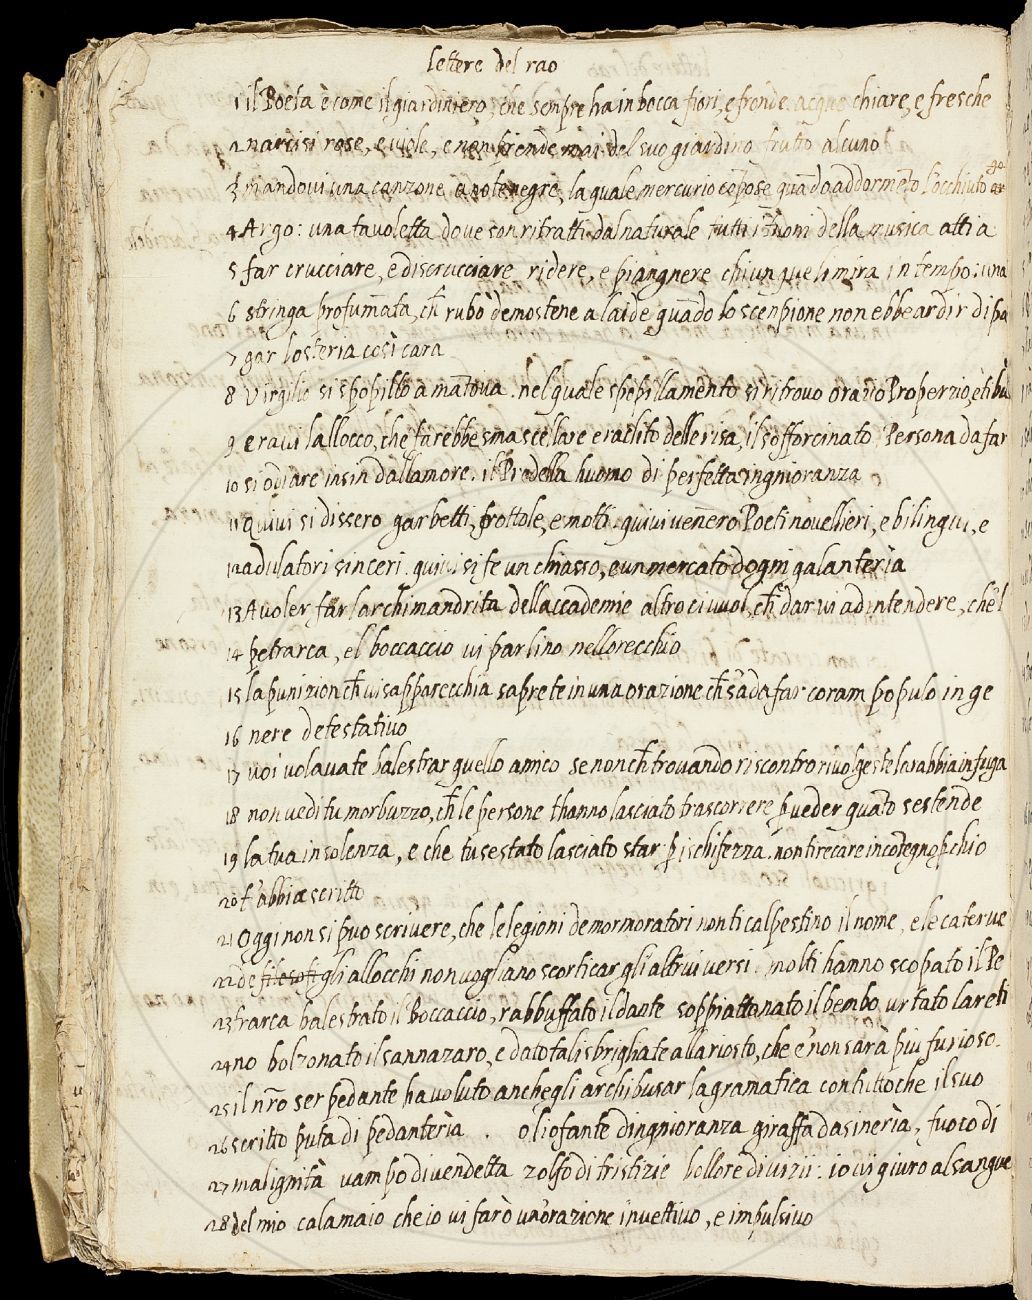 lettere del rao
1 il Poeta è come il giardiniero, che sempre ha in bocca fiori, e fronde acque chiare, e fresche
2 narcisi rose, e viole, e non prende mai del suo giardino frutto alcuno
3 mandovi una canzone a note negre, la quale mercurio cõpose quãdo addormẽto l'occhiuto
4 Argo: una tavoletta dove son ritratti dal naturale tutti i tuoni della musica atti a
5 far crucciare, e discrucciare ridere, e piangnere chiunque li mira in tempo: una
6 stringa profumata, ch̃ rubò demostene a laide quãdo lo scenpione non ebbe ardir di pa
7 gar losteria così cara
8 Virgilio si spopillò a mãtova. nel quale spopillamento si ritrovo orazio Properzio, e tibu
9 eravi lallocco, che farebbe smascellare eraclito delle risa, il sofforcinato Persona da far
10 si odiare insin dallamore. il Pradella huomo di perfetta ingnioranza
11 Quivi si dissero garbetti, frottole, e motti. quivi venẽro Poeti novellieri, e bilingui, e
12 adulatori sinceri. quivi si fe un chiasso, e un mercato dogni galanteria
13 A voler far larchimandrita dellaccademie altro ci vuol, ch̃ dar vi ad intendere, che'l
14 petrarca, el boccaccio vi parlino nellorecchio
15 la punizion ch̃ vi sapparecchia saprete in una orazione ch̃ s'a da far coram populo in ge
16 nere detestativo
17 voi volavate balestrar quello amico se non ch̃ trovando riscontro rivolgeste la rabbia in fuga
18 non vedi tu morbuzzo, ch̃ le persone thanno lasciato trascorrere p veder quãto sestende
19 la tua insolenza, e che tu se stato lasciato star p ischifezza. non ti recare in cõtegno, pchio
20 t'abbia scritto
21 Oggi non si puo scrivere, che le legioni de mormoratori non ti calpestino il nome, e le caterve
22 de filosofi gli allocchi non vogliano scorticar gli altrui versi. molti hanno scopato il Pe
23 trarca balestrato il Boccaccio, rabbuffato il dante soppiattonato il bembo urtato lareti
24 no bolzonato il sannazaro, e dato tali sbrigliate allariosto, che e' non sarà piu furioso.
25 il nr̃o ser pedante ha voluto anche gli archibusar la gramatica con tutto che il suo
26 scritto puta di pedanterìa . oliofante dingnioranza giraffa dasinerìa, fuoco di
27 malignità vampo di vendetta zolfo di tristizie bollore di vizii: io vi giuro al sangue
28 del mio calamaio che io vi farò un'orazione invettivo, e impulsivo